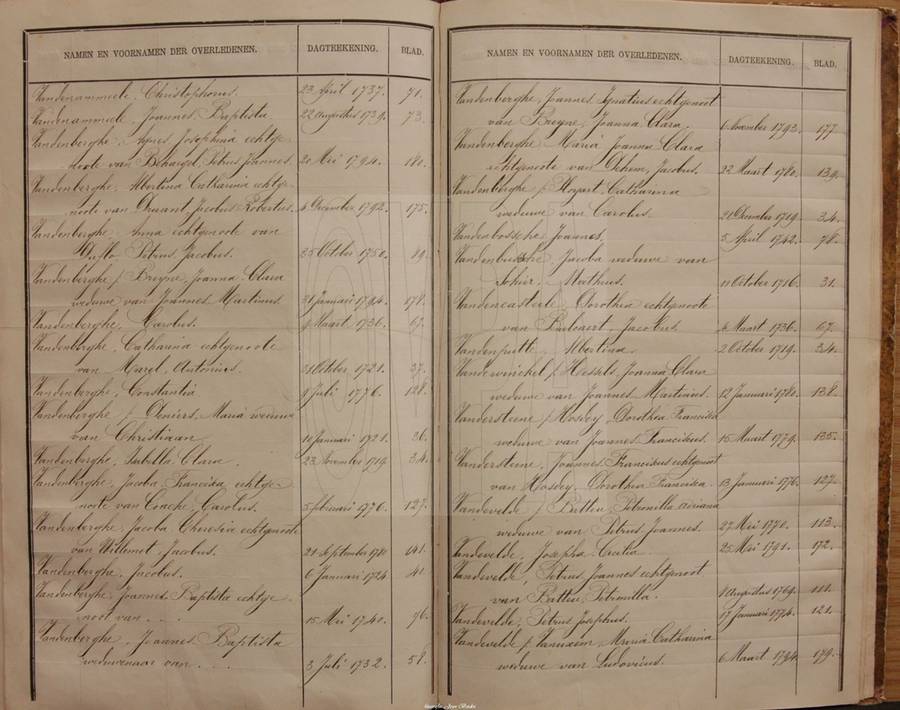 NAMEN EN VOORNAMEN DER OVERLEDENEN. DAGTEEKENING. BLAD.
Vandenammeele, Christophorus. 23 April 1737. 71.
Vandenammeele, Joannes Baptista 22 Augustus 1739. 73.
Vandenberghe, Agnes Josephina echtge-
noote van Behaegel, Petrus Joannes. 20 Mei 1794. 180.
Vandenberghe, Albertina Catharina echtge-
noote van Jacobus Robertus. 4 December 1792. 175.
Vandenberghe, Anna echtgenoote van
Petrus Jacobus. 25 October 1750. 89.
Vandenberghe / Breyne, Joanna Clara
weduwe van Joannes Martinus 31 Januari 1794. 178.
Vandenberghe, Carolus. Maart 1736. 67.
Vandenberghe, Catharina echtgenoote
van Antonius. 21 October 1721. 37.
Vandenberghe, Constantia 9 Juli 1776. 128.
Vandenberghe / Deniers, Maria weduwe
van Christiaan 10 Januari 1721. 36.
Vandenberghe, Isabella Clara. 23 November 1719 34.
Vandenberghe, Jacoba Francisca echtge-
noote van Carolus. 5 februari 1776. 127.
Vandenberghe, Jacoba Theresia echtgenoote
van Willemot, Jacobus. 21 September 1780 141.
Vandenberghe, Jacobus. 6 Januari 1724 41
Vandenberghe Joannes Baptista echtge-
noot van . . . . 15 Mei 1740. 76.
Vandenberghe, Joannes Baptista
weduwenaar van . . . 3 Juli 1732. 58.
NAMEN EN VOORNAMEN DER OVERLEDENEN. DAGTEEKENING. BLAD.
Vandenberghe, Joannes Ignatius echtgenoot
van Breyne, Joanna Clara. 6 November 1793. 177.
Vandenberghe Maria Joanna Clara
echtgenoote van Jacobus. 22 Maart 1780. 139.
Vandenberghe / Catharina
weduwe van Carolus. 21 December 1719. 34.
Vandenbossche Joannes. 5 April 1742. 78.
Vandenbussche Jacoba weduwe van
Matheus. 11 October 1716. 31.
Vandencasteele, Dorothea echtgenoote
van Jacobus. 4 Maart 1736. 67.
Vandenputte, Albertina. 2 October 1719. 34.
Vanderwinckel / Hessels, Joanna Clara
weduwe van Joannes Martinus. 12 Januari 1780. 138.
Vandersteene / Hosdey, Dorothea Francisca
weduwe van Joannes Franciscus. 15 Maart 1779. 135.
Vandersteene, Joannes Franciscus echtgenoot
van Hosdey, Dorothea Francisca. 13 Januari 1776. 127.
Vandevelde / Batteu, Petronilla Adriana
weduwe van Petrus Joannes. 27 Mei 1770. 113.
Vandevelde, Josepha Cecilia 25 Mei 1791. 172.
Vandevelde, Petrus Joannes echtgenoot
van Batteu, Petronilla. Augustus 1769. 111.
Vandevelde, Petrus Josephus. 17 Januari 1774. 121.
Vandevelde / Maria Catharina
weduwe van Ludovicus. 6 Maart 1794. 179.